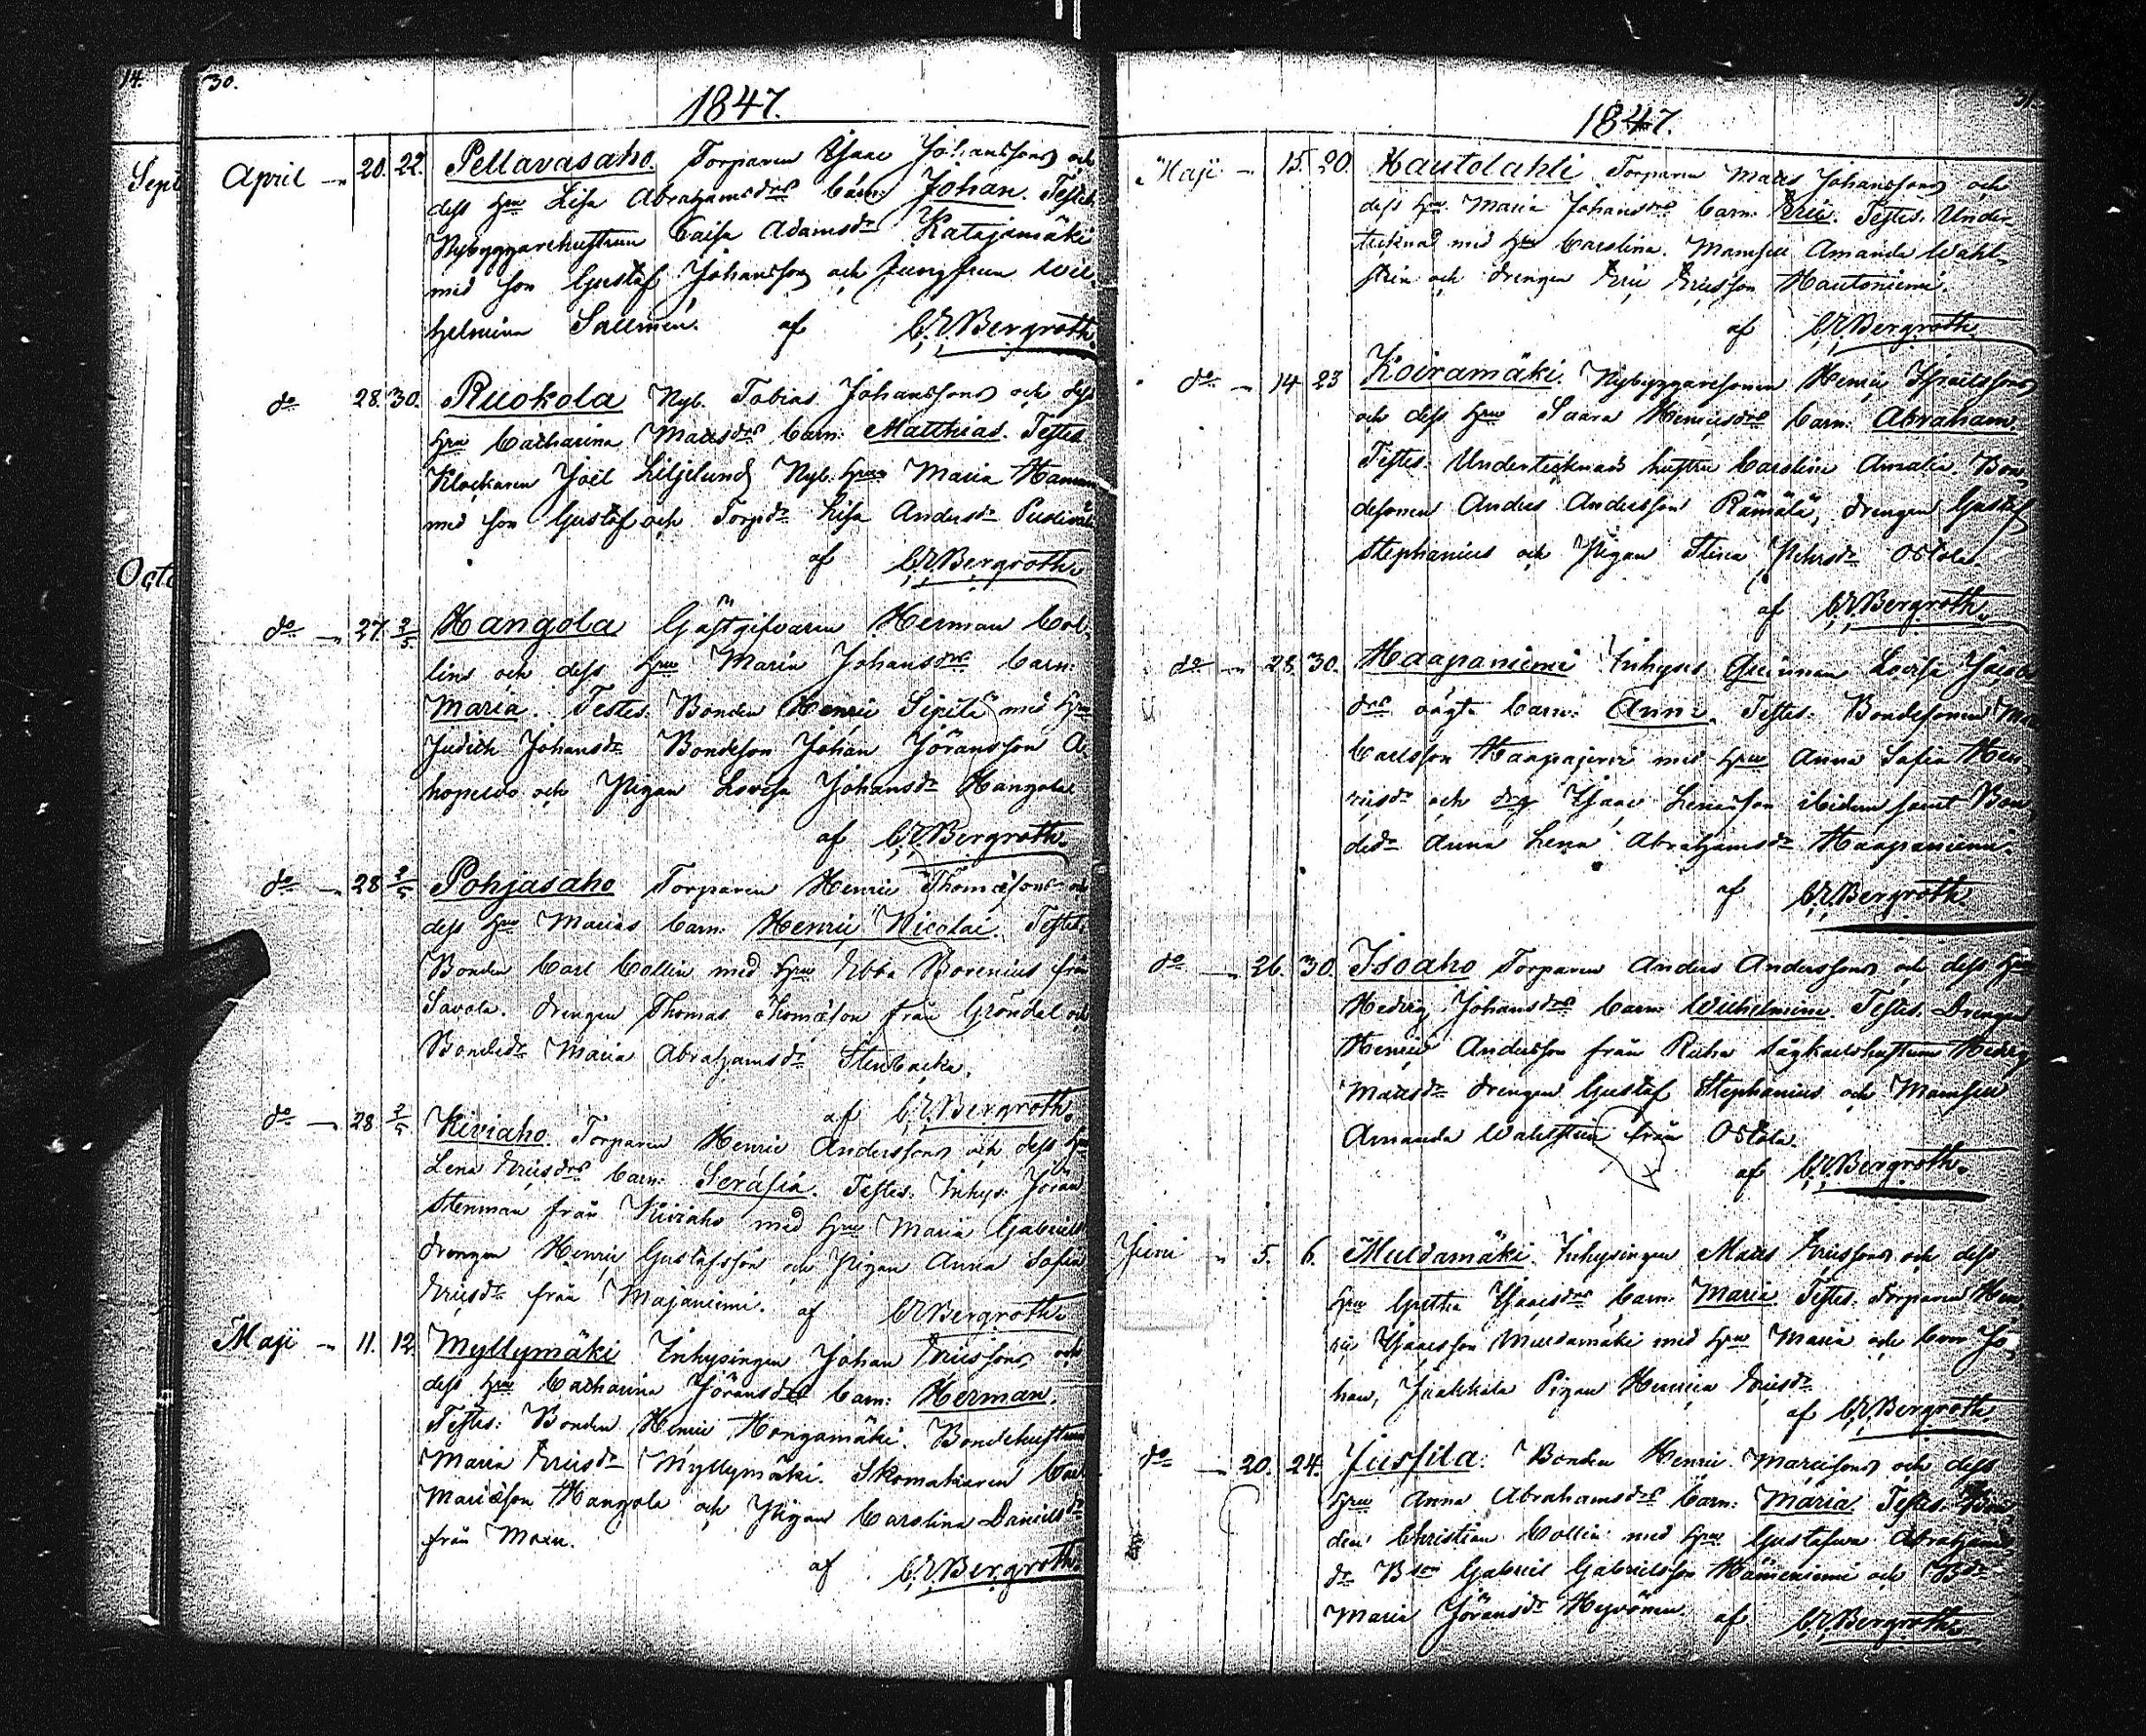 14.
Sept
Octo
30.
1847.
April – 20. 22. Pellavasaho. Torparen Isaac Johanssons och
dess hru Lisa Abrahamsdrs barn: Johan. Testes
Nybyggarehustrun Caisa Adamsdr Katajamäki
med son Gustaf Johansson och Jungfrun Wil-
helmina Salimén. af C.E.Bergroth.
do 28. 30. Ruokola Nyb. Tobias Johanssons och dess
hru Catharina Matsdrs barn: Matthias. Testes
Klockaren Joël Liljelund, Nyb. hrun Maria
med son Gustaf och Torpdr Lisa Andersdr
af C.E.Bergroth.
do – 27. 2/5. Hangola Gästgifvaren Herman Col-
lins och dess hru Maria Johansdrs barn:
Maria. Testes: Bonden Henric Sipilä med hru
Judith Johansdr Bondeson Johan Jöransson A-
hopelto och Pigan Lovisa Johansdr Hangola
af C.E.Bergroth.
do – 28 2/5 Pohjasaho Torparen Henric Thomæsons och
dess hru Marias barn: Henric Nicolai. Testes:
Bonden Carl Collin med hru Ebba Borenius från
Savola. drengen Thomas Thomæson från Gröndal och
Bondedr Maria Abrahamsdr Stenbacka.
af C.E.Bergroth.
do – 28. 2/5. Kiviaho. Torparen Henric Anderssons och dess hru
Lena Ericsdrs barn: Serafia. Testes: Inhys: Jöran
Stenman från Kiviaho med hru Maria Gabrielsdr
drengen Henric Gustafsson och Pigan Anna Sofia
Ericsdr från Majaniemi. af C.E.Bergroth.
Maji – 11. 12. Myllymäki Inhysingen Johan Ericssons och
dess hru Catharina Jöransdrs barn: Herman.
Testes: Bonden Henric Hongamäki. Bondehustrun
Maria Ericsdr Myllymäki. Skomakaren Carl
Mariæson Hangola och Pigan Carolina Danielsdr
från
af C.E.Bergroth.
31.
1847.
Maji – 15. 20. Hautolahti Torparen Mats Johanssons och
dess hru Maria Johansdrs barn: Eric. Testes. Under-
tecknad med hru Carolina. Mamsell Amanda Wahl-
stén och drengen Eric Ericsson Hautoniemi.
af C.E.Bergroth.
do – 14 23 Koiramäki. Nybyggaresonen Henric Israelssons
och dess hru Saara Henricsdrs barn: Abraham.
Testes: Undertecknads hustru Carolina Amalia, Bon-
desonen Anders Andersson Rämälä, drengen Gustaf
Stephanius och Pigan Stina Pehrsdr Ostola.
af C.E.Bergroth.
do – 28. 30. Haapaniemi Inhyses Qvinnan Lovisa
drs oägta barn: Anna. Testes: Bondesonen Mats
Carlsson Haapajervi med hru Anna Sofia Hen-
ricsdr och drg Isaac ibidem samt Bon-
dedr Anna Lena Abrahamsdr Haapaniemi.
af C.E.Bergroth.
do – 26. 30. Isoaho Torparen Anders Anderssons och dess hru
Hedvig Johansdrs barn: Wilhelmina. Testes. Drengen
Henric Andersson från Ruha Sågkarlshustrun Hedvig
Matsdr drengen Gustaf Stephanius och Mamsell
Amanda Wahlstén från Ostola.
af C.E.Bergroth.
Juni – 5. 6. Muldamäki. Inhysingen Mats Ericssons och dess
hru Gretha Isacsdrs barn: Maria. Testes: Torparen Hen-
ric Isacsson Muldamäki med hru Maria och Jo-
han, Jaakkola Pigan Henrica Ericsdr
af C.E.Bergroth
do – 20. 24. Jussila: Bonden Henric Mariæsons och dess
hru Anna Abrahamsdrs barn: Maria. Testes. Bon-
den Christian Collin med hru Gustafva Abrahams-
dr Bson Gabriel Gabrielsson Hämeniemi och Bdr
Maria Jöransdr Hyvönen. af C.E.Bergroth.